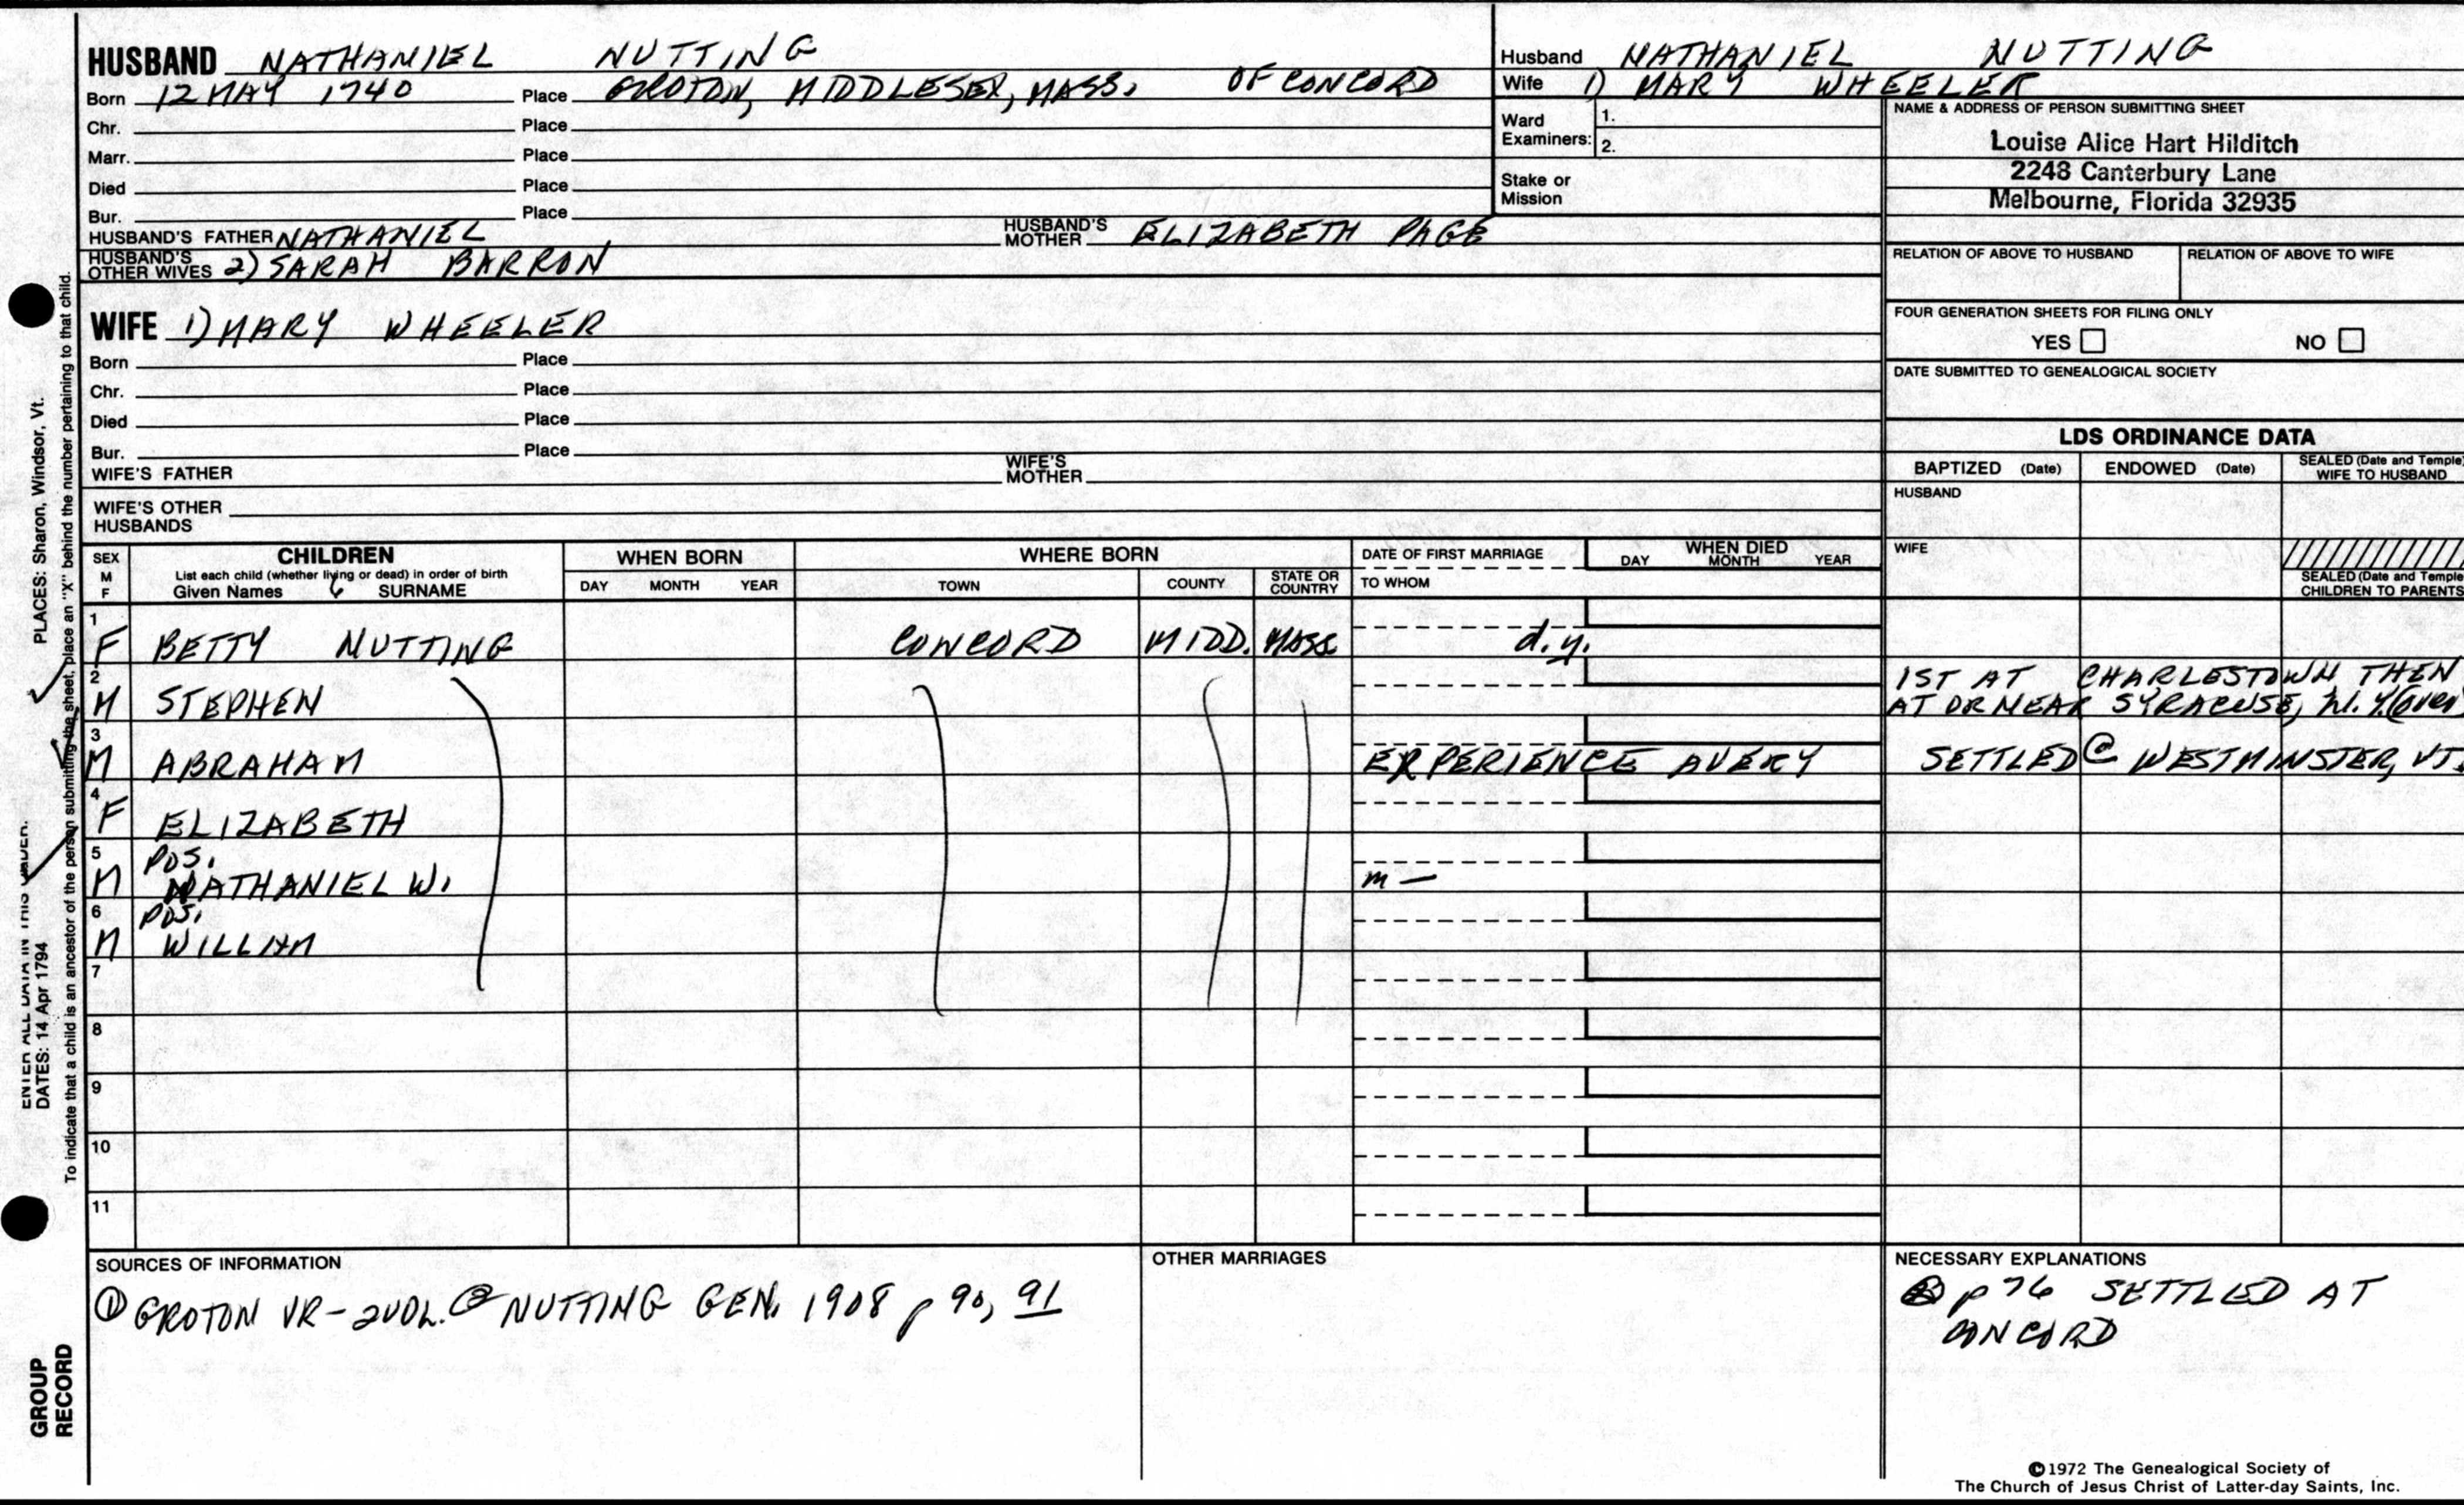 HUSBAND NATHANIEL NUTTING
Born 12 MAY 1740 Place GROTON, MIDDLESEX, MASS. OF CONCORD
Chr. Place
Marr. Place
Died Place
Bur. Place
HUSBAND'S FATHER NATHANIEL HUSBAND'S MOTHER ELIZABETH PAGE
HUSBAND'S OTHER WIVES 2) SARAH BARRON
WIFE 1) MARY WHEELER
Born Place
Chr. Place
Died Place
Bur. Place
WIFE'S FATHER WIFE'S MOTHER
WIFE'S OTHER HUSBANDS
Husband NATHANIEL NUTTING
Wife 1) MARY WHEELER
Ward Examiners: 1.
2.
Stake or Mission
NAME & ADDRESS OF PERSON SUBMITTING SHEET
Louise Alice Hart Hilditch
2248 Canterbury Lane
Melbourne, Florida 32935
RELATION OF ABOVE TO HUSBAND RELATION OF ABOVE TO WIFE
FOUR GENERATION SHEETS FOR FILING ONLY
YES NO
DATE SUBMITTED TO GENEALOGICAL SOCIETY
LDS ORDINANCE DATA
BAPTIZED (Date) ENDOWED (Date) SEALED (Date and Temple) WIFE TO HUSBAND
HUSBAND
WIFE
SEALED (Date and Temple
CHILDREN TO PARENTS
SEX M F CHILDREN WHEN BORN WHERE BORN DATE OF FIRST MARRIAGE WHEN DIED
List each child (whether living or dead) in order of birth
Given Names SURNAME DAY MONTH YEAR TOWN COUNTY STATE OR COUNTRY TO WHOM DAY MONTH YEAR
1 F BETTY NUTTING CONCORD MIDD. MASS d.y.
2 M STEPHEN 1ST AT CHARLESTOWN THEN
AT OR NEAR SYRACUSE, N.Y. (over
3 M ABRAHAM EXPERIENCE AVERY SETTLED @ WESTMINSTER, VT.
4 F ELIZABETH
5 M POS. NATHANIEL W. m —
6 M POS. WILLIAM
7
8
9
10
11
SOURCES OF INFORMATION
① GROTON VR - 2 VOL. ② NUTTING GEN. 1908 p 90, 91
OTHER MARRIAGES
NECESSARY EXPLANATIONS
② p 76 SETTLED AT
CONCORD
©1972 The Genealogical Society of
The Church of Jesus Christ of Latter-day Saints, Inc.
PLACES: Sharon, Windsor, Vt.
ENTER ALL DATA IN THIS ORDER:
DATES: 14 Apr 1794
To indicate that a child is an ancestor of the person submitting the sheet, place an "X" behind the number pertaining to that child.
GROUP
RECORD